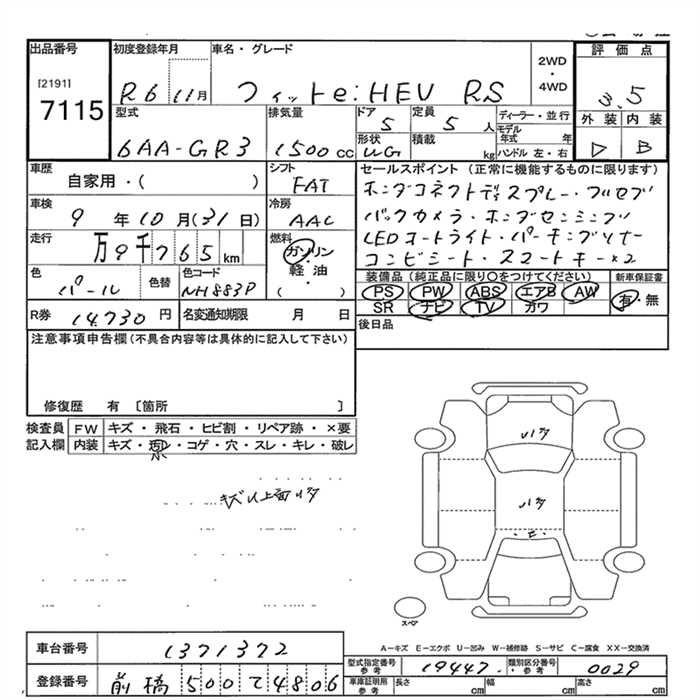 出品番号
[2191]
7115
初度登録年月
R6 11月
車名・グレード
フィットe:HEV RS
2WD
・
4WD
評 価 点
3.5
外 装 内 装
D B
型式
6AA-GR3
排気量
1500 cc
ドア
5
定員
5 人
形状
WG
積載
kg
ディーラー・並行
モデル年式 年
ハンドル 左・右
車歴
自家用・( )
シフト
FAT
車検
9 年 10 月(31 日)
冷房
AAC
走行
万 9 千 7 6 5 km
燃料
ガソリン
・
軽 油
・
( )
色
パール
色替
色コード
NH883P
R券
14.730 円
名変通知期限 月 日
セールスポイント (正常に機能するものに限ります)
ホンダコネクトディスプレー・フルセグ
バックカメラ・ホンダセンシング
LEDオートライト・パーキングソナー
コンビシート・スマートキー×2
装備品 (純正品に限り〇をつけてください)
PS PW ABS エアB AW
SR ナビ TV カワ
新車保証書
有・無
後日品
注意事項申告欄(不具合内容等は具体的に記入して下さい)
修復歴 有 〔箇所 〕
検査員 FW キズ・飛石・ヒビ割・リペア跡・×要
記入欄 内装 キズ・汚・コゲ・穴・スレ・キレ・破レ
スペア
A-キズ E-エクボ U-凹み W-補修跡 S-サビ C-腐食 XX-交換済
車台番号 1371372
登録番号 前橋 500 て 4806
型式指定番号 参考 19447
類別区分番号 参考 0029
車庫証明用 参考 長さ cm 幅 cm 高さ cm